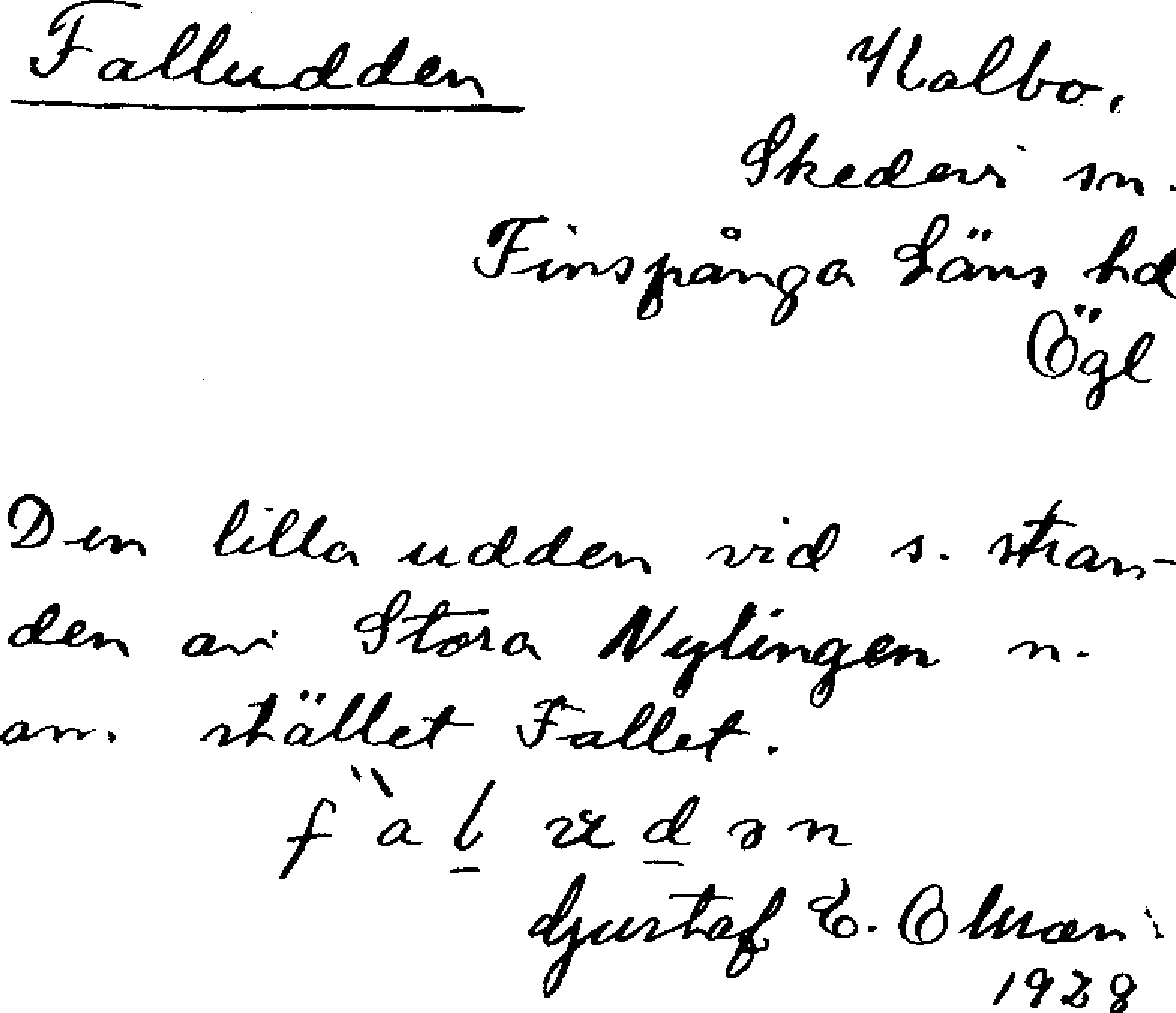 Falludden
Kalbo,
Skedevi sn.
Finspånga Läns hd
Ögl
Den lilla udden vid s. stran-
den av Stora Nylingen n.
om. stället Fallet.
Gustaf E.
1928